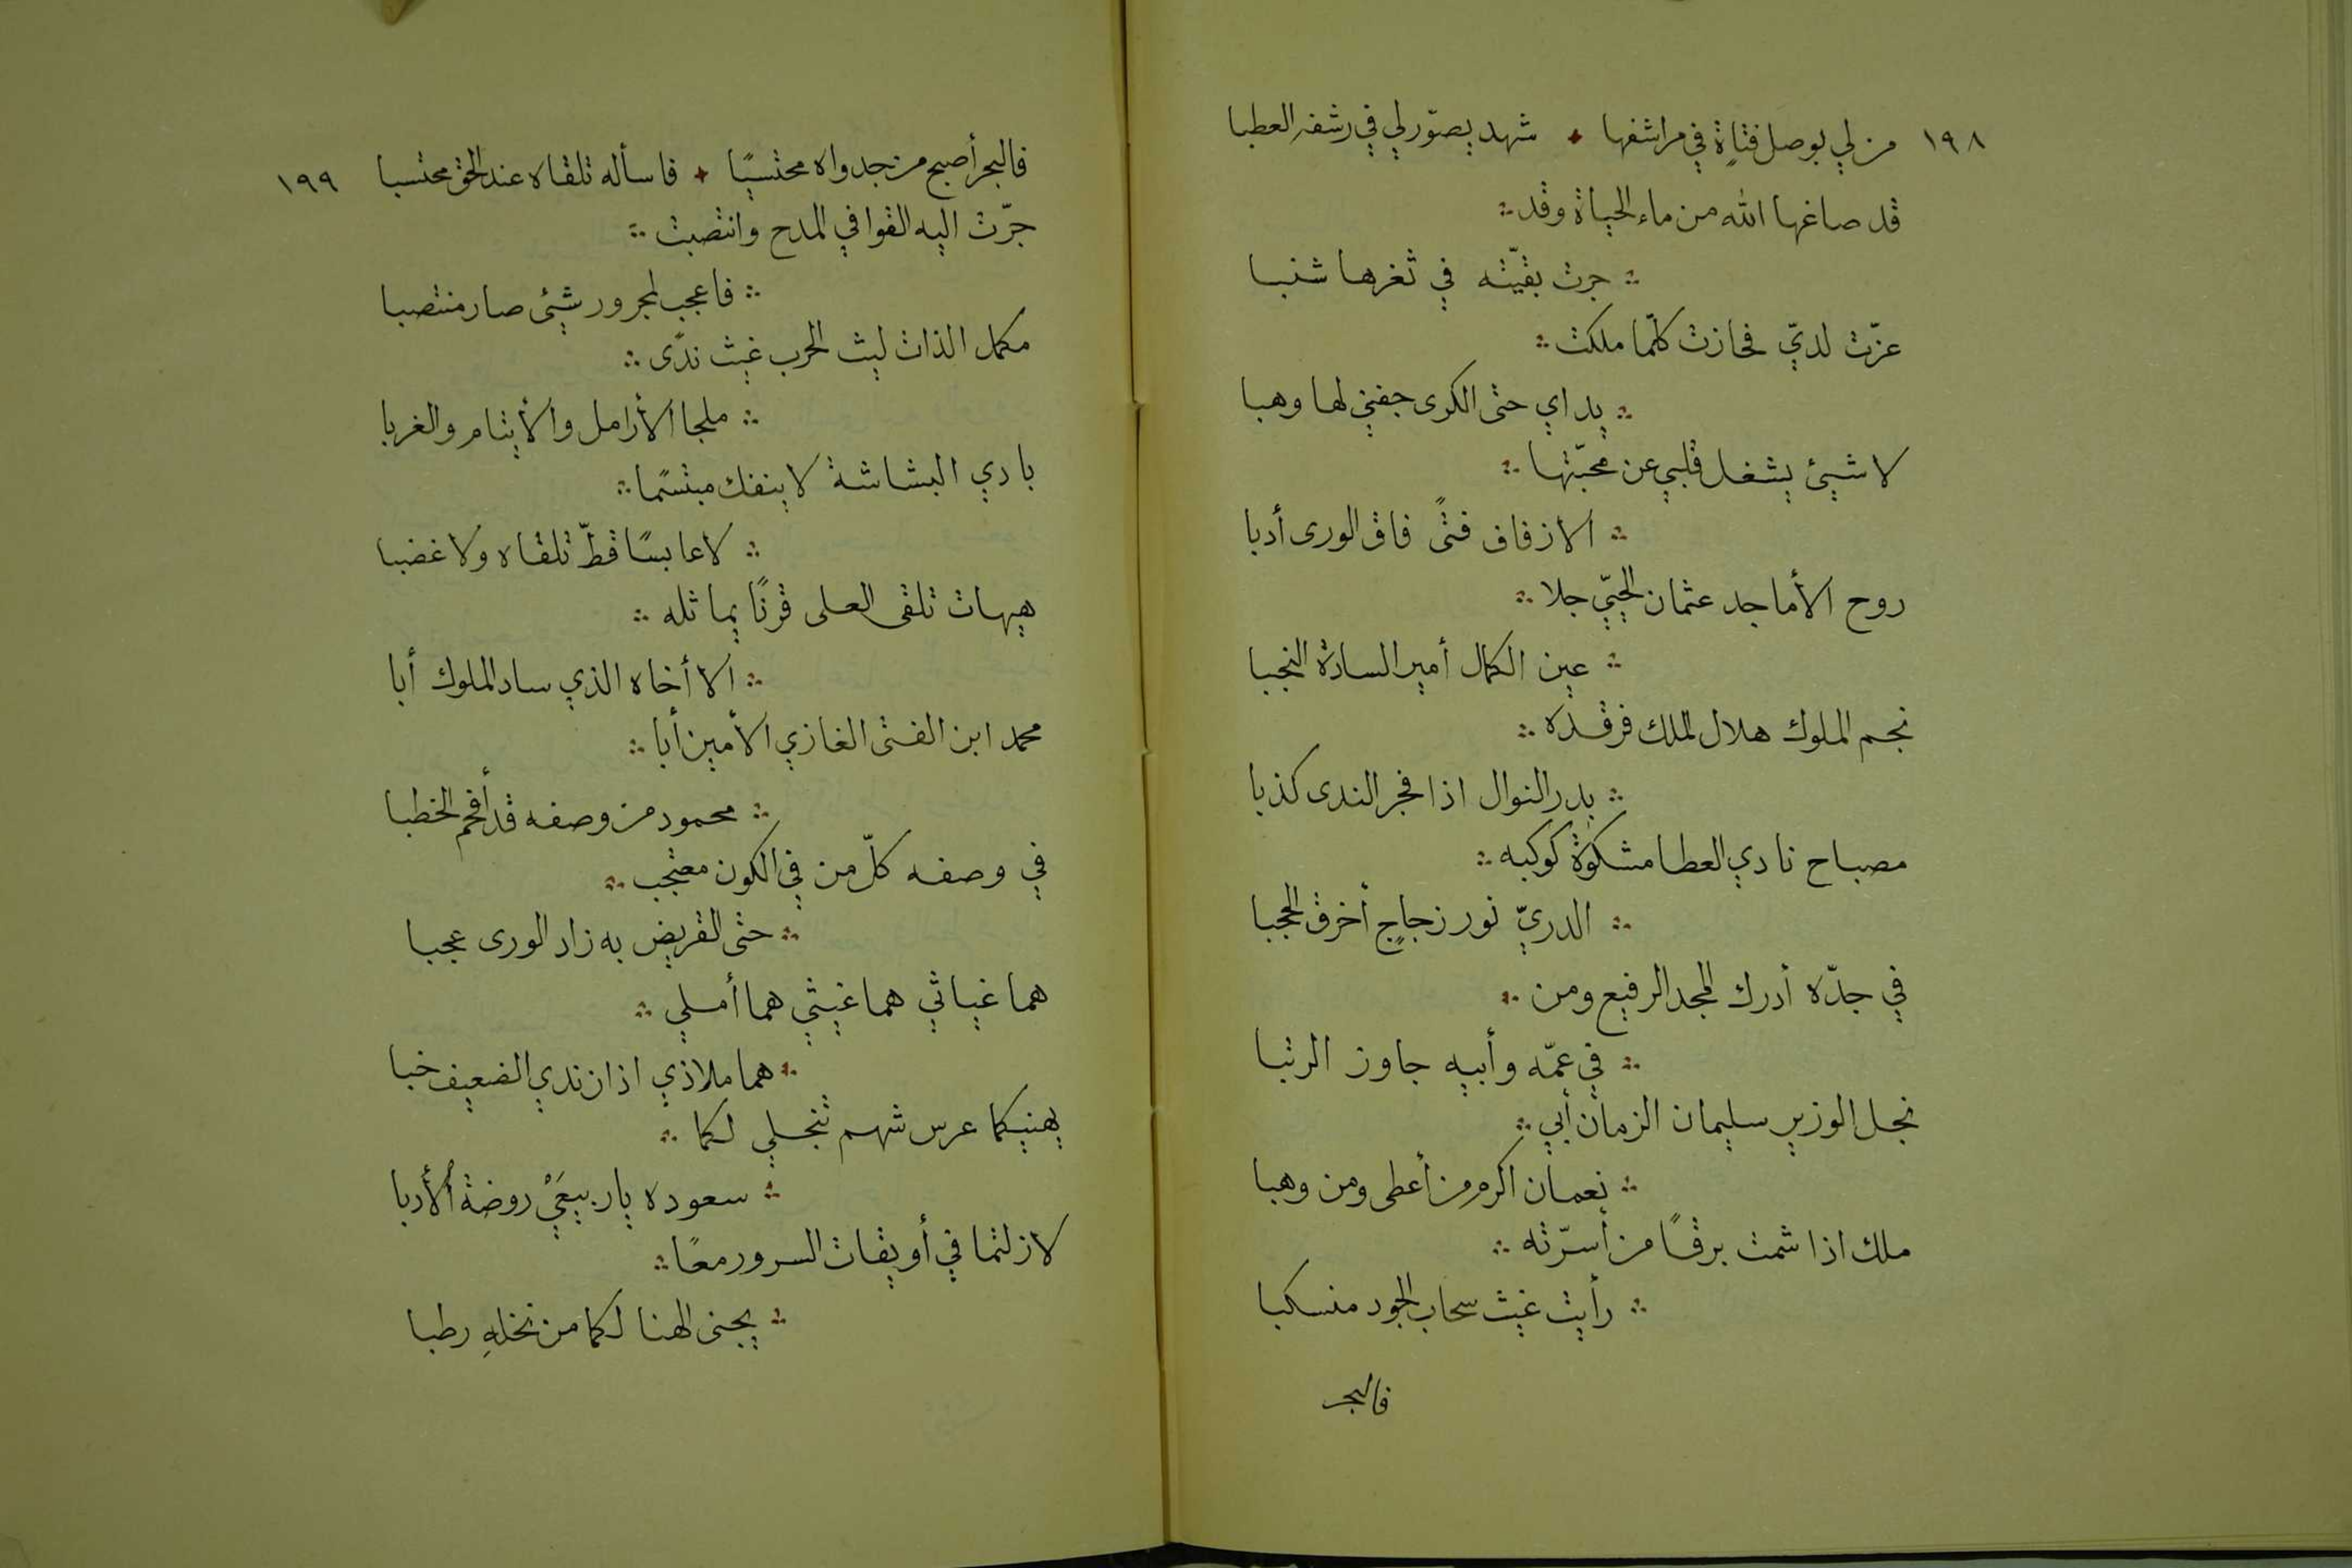 ١٩٨ من لي بوصل فتاةٍ في مراشفها ✦ شهد يصوّر لي في رشفه العطبا
قد صاغها الله من ماء الحياة وقد ∴
∴ جرت بقيّته في ثغرها شنبا
عزّت لديّ فحازت كلّما ملكت ∴
∴ يداي حتى الكرى جفني لها وهبا
لا شيئ يشغل قلبي عن محبّتها ∴
∴ الا زفاف فتىً فاق الورى أدبا
روح الأماجد عثمان الحييّ جلا ∴
∴ عين الكمال أمير السادة النجبا
نجم الملوك هلال الملك فرقده ∴
∴ بدر النوال اذا فجر الندى كذبا
مصباح نادي العطا مشكوة كوكبه ∴
∴ الدريّ نور زجاجٍ أخرق الحجبا
في جدّه أدرك المجد الرفيع ومن ∴
∴ في عمّه وأبيه جاوز الرتبا
نجل الوزير سليمان الزمان أبي ∴
∴ نعمان اكرم من أعطى ومن وهبا
ملك اذا شمت برقًا من أسرّته ∴
∴ رأيت غيث سحاب الجود منسكبا
فالبحر
فالبحر أصبح من جدواه محتسبًا ✦ فاسأله تلقاه عند الحق محتسبا ١٩٩
جرّت اليه القوافي المدح وانتصبت ∴
∴ فاعجب لمجرور شيئ صار منتصبا
مكمل الذات ليث الحرب غيث ندًى ∴
∴ ملجا الأرامل والأيتام والغربا
بادي البشاشة لا ينفك مبتسمًا ∴
∴ لا عابسًا قطّ تلقاه ولا غضبا
هيهات تلقى العلى قرنًا يماثله ∴
∴ الا أخاه الذي ساد الملوك أبا
محمد ابن الفتى الغازي الأمين أبا ∴
∴ محمود من وصفه قد أفحم الخطبا
في وصفه كلّ من في الكون معتجب ∴
∴ حتى القريض به زاد الورى عجبا
هما غياثي هما غيثي هما أملي ∴
∴ هما ملاذي اذا زندي الضعيف خبا
يهنيكما عرس شهم تنجلي لكما ∴
∴ سعوده يا ربيعَيْ روضة الأدبا
لا زلتما في أويقات السرور معًا ∴
∴ يجنى الهنا لكما من نخلهِ رطبا